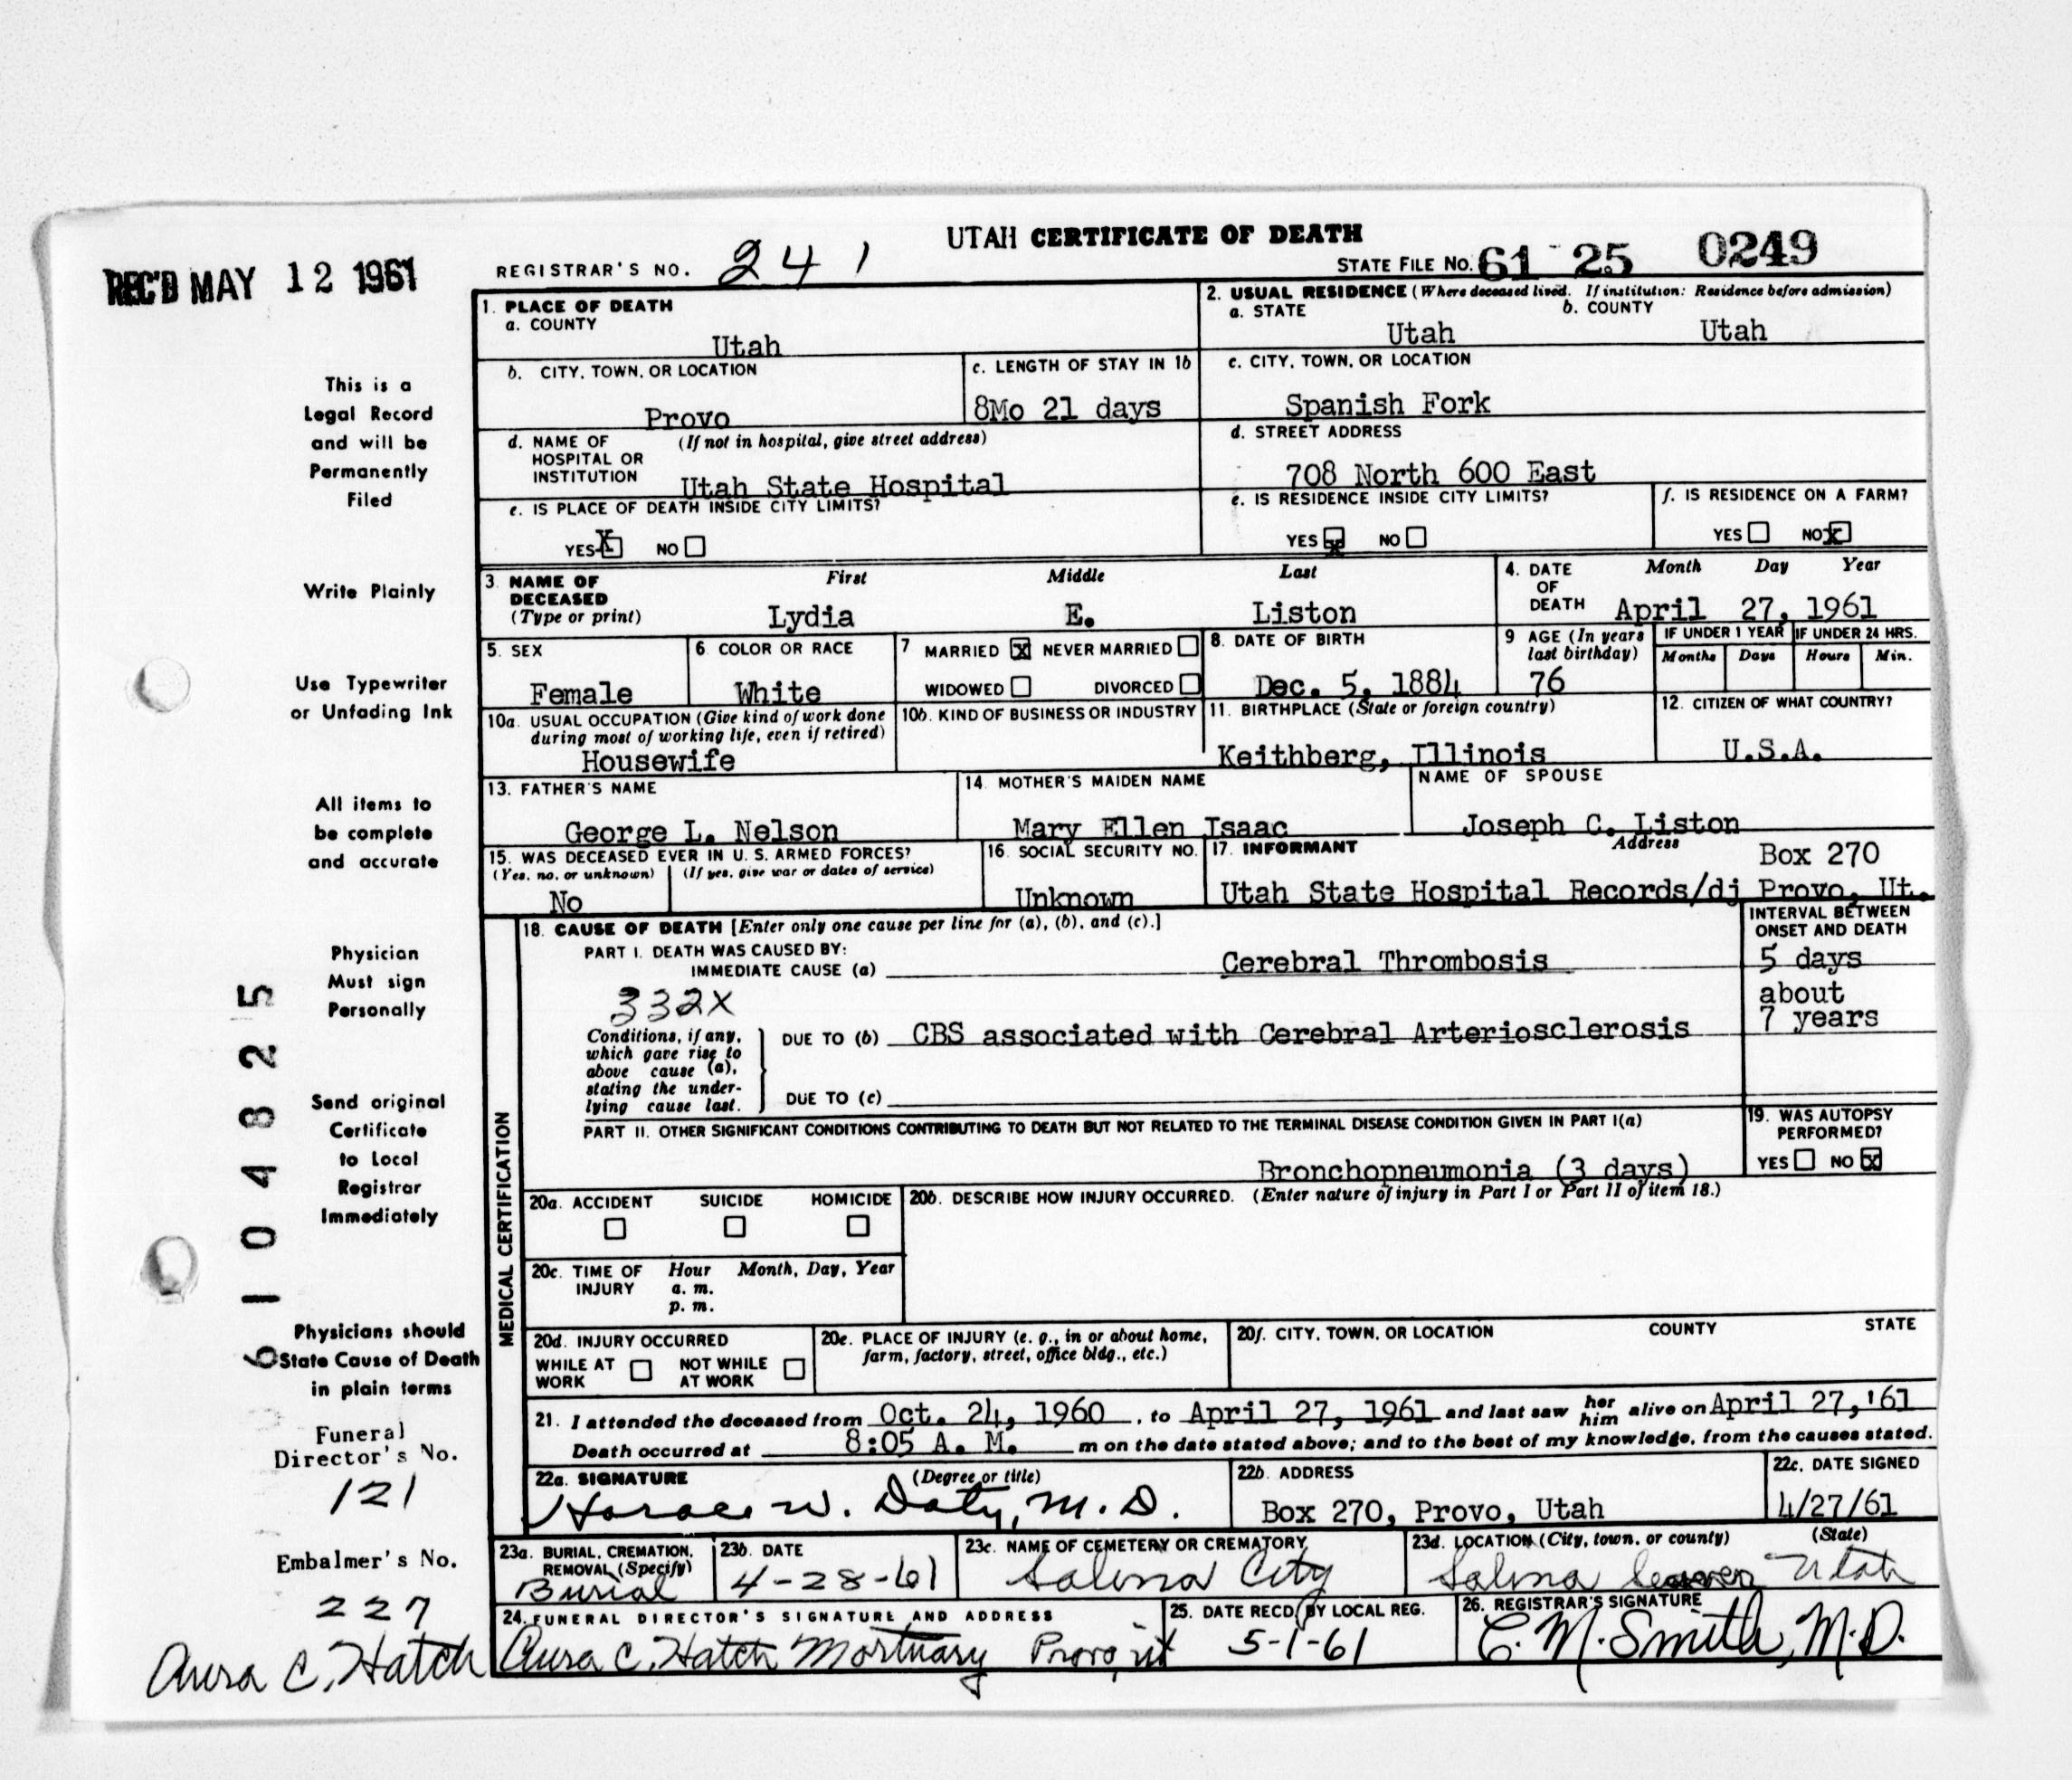 UTAH CERTIFICATE OF DEATH
REC'D MAY 12 1961
REGISTRAR'S NO. 241
STATE FILE NO. 61 25 0249
1. PLACE OF DEATH
a. COUNTY
Utah
2. USUAL RESIDENCE (Where deceased lived. If institution: Residence before admission)
a. STATE b. COUNTY
Utah Utah
This is a
Legal Record
and will be
Permanently
Filed
b. CITY, TOWN, OR LOCATION
Provo
c. LENGTH OF STAY IN 1b
8Mo 21 days
c. CITY, TOWN, OR LOCATION
Spanish Fork
d. NAME OF (If not in hospital, give street address)
HOSPITAL OR
INSTITUTION Utah State Hospital
d. STREET ADDRESS
708 North 600 East
e. IS PLACE OF DEATH INSIDE CITY LIMITS?
YES X NO
e. IS RESIDENCE INSIDE CITY LIMITS?
YES X NO
f. IS RESIDENCE ON A FARM?
YES NO X
Write Plainly
3. NAME OF DECEASED (Type or print)
First Middle Last
Lydia E. Liston
4. DATE OF DEATH
Month Day Year
April 27, 1961
Use Typewriter
or Unfading Ink
5. SEX
Female
6. COLOR OR RACE
White
7 MARRIED X NEVER MARRIED
WIDOWED DIVORCED
8. DATE OF BIRTH
Dec. 5, 1884
9 AGE (In years
last birthday)
76
IF UNDER 1 YEAR IF UNDER 24 HRS.
Months Days Hours Min.
10a. USUAL OCCUPATION (Give kind of work done
during most of working life, even if retired)
Housewife
10b. KIND OF BUSINESS OR INDUSTRY
11. BIRTHPLACE (State or foreign country)
Keithberg, Illinois
12. CITIZEN OF WHAT COUNTRY?
U.S.A.
All items to
be complete
and accurate
13. FATHER'S NAME
George L. Nelson
14. MOTHER'S MAIDEN NAME
Mary Ellen Isaac
NAME OF SPOUSE
Joseph C. Liston
15. WAS DECEASED EVER IN U. S. ARMED FORCES?
(Yes, no, or unknown) (If yes, give war or dates of service)
No
16. SOCIAL SECURITY NO.
Unknown
17. INFORMANT Address
Box 270
Utah State Hospital Records/dj Provo, Ut.
MEDICAL CERTIFICATION
18. CAUSE OF DEATH [Enter only one cause per line for (a), (b), and (c).]
INTERVAL BETWEEN
ONSET AND DEATH
Physician
Must sign
Personally
PART I. DEATH WAS CAUSED BY:
IMMEDIATE CAUSE (a) Cerebral Thrombosis
5 days
332X
Conditions, if any,
which gave rise to
above cause (a),
stating the under-
lying cause last.
DUE TO (b) CBS associated with Cerebral Arteriosclerosis
about
7 years
DUE TO (c)
6104825
Send original
Certificate
to Local
Registrar
Immediately
PART II. OTHER SIGNIFICANT CONDITIONS CONTRIBUTING TO DEATH BUT NOT RELATED TO THE TERMINAL DISEASE CONDITION GIVEN IN PART I(a)
Bronchopneumonia (3 days)
19. WAS AUTOPSY
PERFORMED?
YES NO X
20a. ACCIDENT SUICIDE HOMICIDE
20b. DESCRIBE HOW INJURY OCCURRED. (Enter nature of injury in Part I or Part II of item 18.)
20c. TIME OF INJURY
Hour Month, Day, Year
a. m.
p. m.
Physicians should
State Cause of Death
in plain terms
20d. INJURY OCCURRED
WHILE AT WORK NOT WHILE AT WORK
20e. PLACE OF INJURY (e. g., in or about home,
farm, factory, street, office bldg., etc.)
20f. CITY, TOWN, OR LOCATION COUNTY STATE
21. I attended the deceased from Oct. 24, 1960, to April 27, 1961 and last saw her him alive on April 27,'61
Death occurred at 8:05 A. M. m on the date stated above; and to the best of my knowledge, from the causes stated.
Funeral
Director's No.
121
22a. SIGNATURE (Degree or title)
Horace W. Doty, M.D.
22b. ADDRESS
Box 270, Provo, Utah
22c. DATE SIGNED
4/27/61
Embalmer's No.
227
Aura C. Hatch
23a. BURIAL, CREMATION,
REMOVAL (Specify)
Burial
23b. DATE
4-28-61
23c. NAME OF CEMETERY OR CREMATORY
Salina City
23d. LOCATION (City, town, or county) (State)
Salina Utah
24. FUNERAL DIRECTOR'S SIGNATURE AND ADDRESS
Aura C. Hatch Mortuary Provo, Ut
25. DATE RECD. BY LOCAL REG.
5-1-61
26. REGISTRAR'S SIGNATURE
C. M. Smith, M.D.